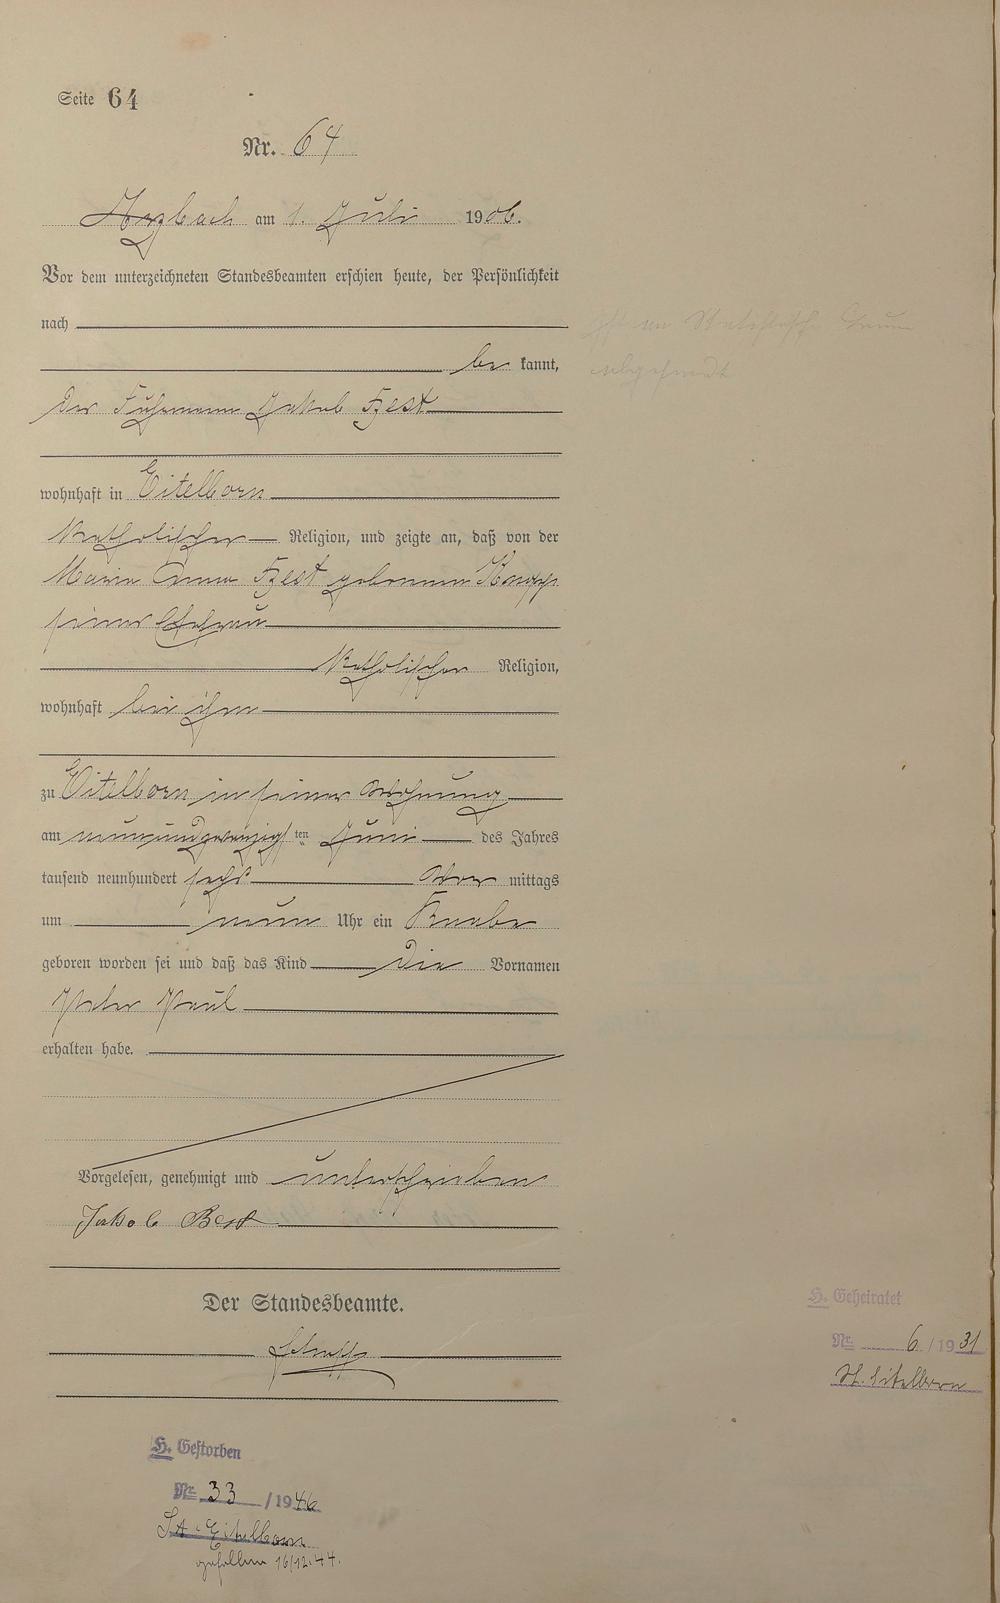 Seite 64
Nr. 64
Arzbach am 1. Juli 1906.
Vor dem unterzeichneten Standesbeamten erschien heute, der Persönlichkeit
nach
be kannt,
der Fuhrmann Jakob Best
wohnhaft in Eitelborn
katholischer Religion, und zeigte an, daß von der
Maria Anna Best geborenen Knopp
seiner Ehefrau
katholischer Religion,
wohnhaft bei ihm
zu Eitelborn in seiner Wohnung
am neunundzwanzigsten Juni des Jahres
tausend neunhundert sechs Vor mittags
um neun Uhr ein Knabe
geboren worden sei und daß das Kind die Vornamen
Peter Paul
erhalten habe.
Vorgelesen, genehmigt und unterschrieben
Jakob Best
Der Standesbeamte.
H. Geheiratet
Nr. 6/1931
St. Eitelborn
H. Gestorben
Nr. 33/1946
St. A. Eitelborn
gefallen 16/12.44.